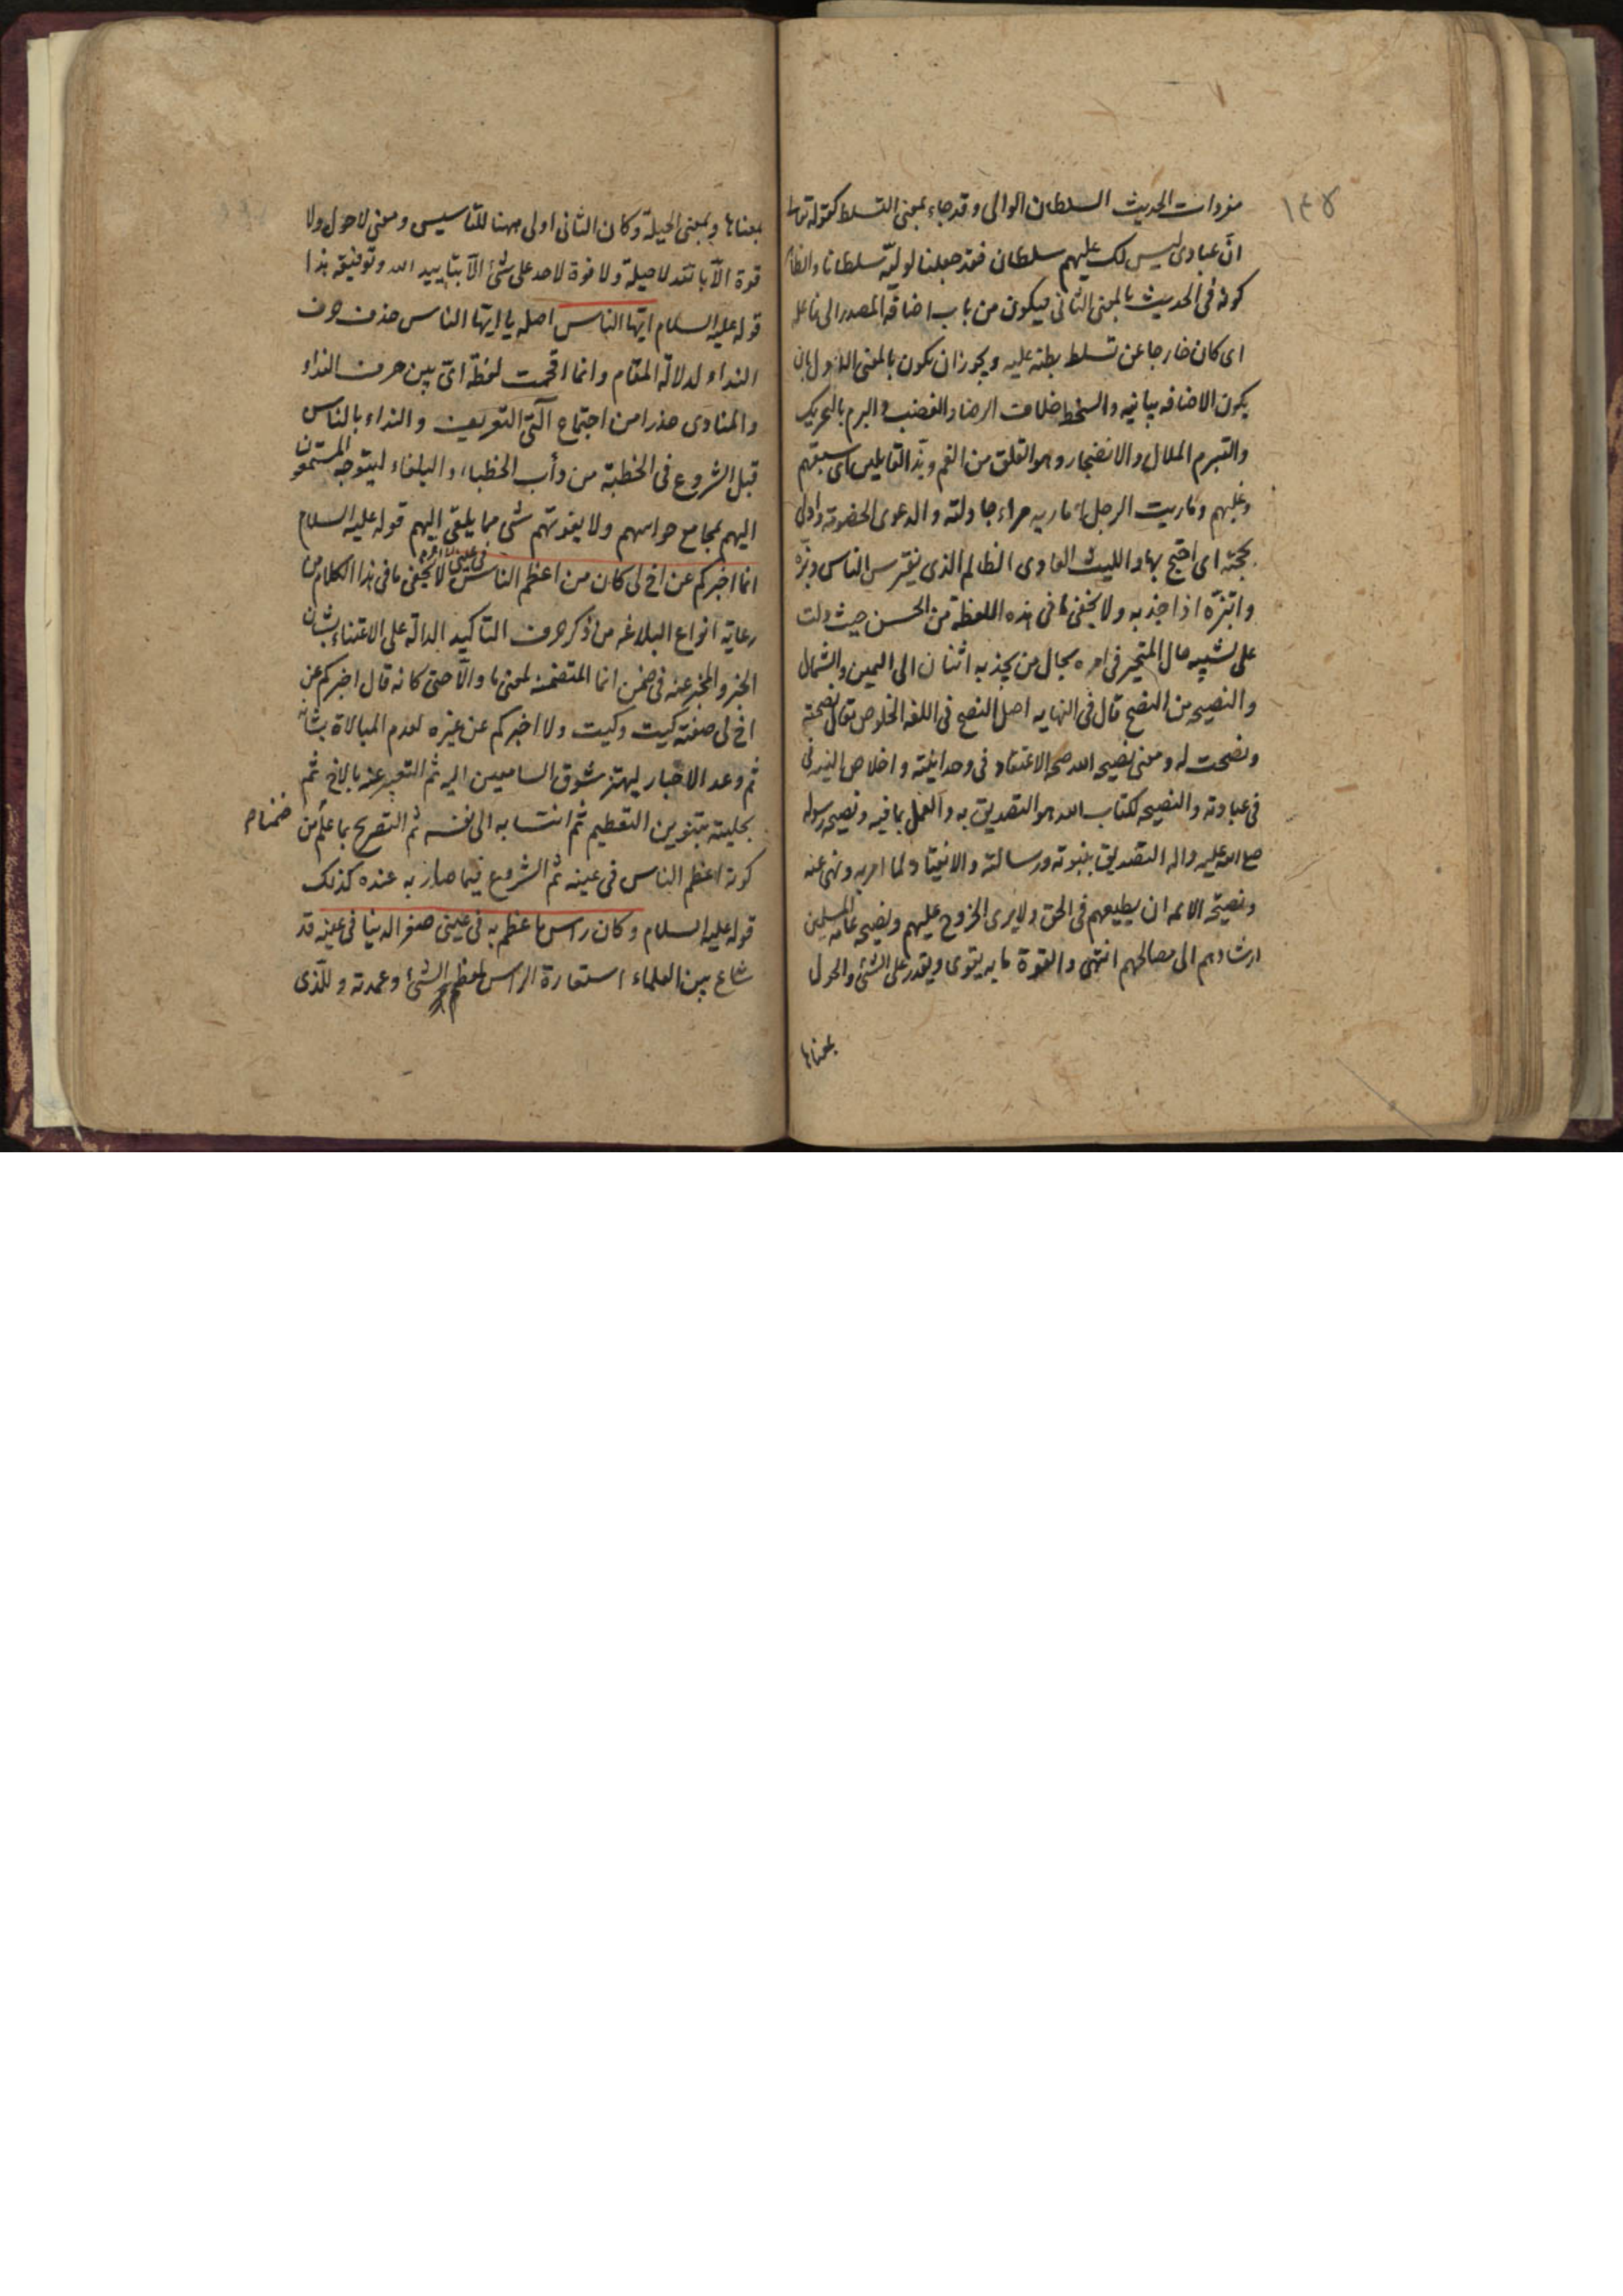 ١٣٥
مفردات الحديث السلطان الوالى وقد جاء بمعنى التسلط كقوله تعالى
انّ عبادى ليس لك عليهم سلطان فقد جعلنا لوليّه سلطانا والظاهر
كونه فى الحديث بالمعنى الثانى فيكون من باب اضافة المصدر الى فاعله
اى كان خارجا عن تسلط بطنه عليه ويجوز ان يكون بالمعنى الاول بان
يكون الاضافه بيانيه والسخط خلاف الرضا والغضب والبرم بالتحريك
والتبرم الملال والانضجار وهو القلق من الغم وبذّ القايلين اى سبقهم
وغلبهم وماريت الرجل اماريه مراء جادلته والدعوى الخصومة وادلى
بحجته اى احتج بها والليث العادى الظالم الذى يفترس الناس وبزّه
وابتزّه اذا جذبه ولا يخفى ما فى هذه اللفظة من الحسن حيث دلت
على تشبيه حال المتحير فى امره بحال من يجذبه اثنان الى اليمين والشمال
والنصيحه من النصح قال فى النهايه اصل النصح فى اللغه الخلوص يقال نصحته
ونصحت له ومعنى نصيحه الله صحه الاعتقاد فى وحدانيته واخلاص النيه
فى عبادته والنصيحه لكتاب الله هو التصديق به والعمل بما فيه ونصيحه رسوله
صلى الله عليه واله التصديق بنبوته ورسالته والانقياد لما امر به ونهى عنه
ونصيحه الائمه ان يطيعهم فى الحق ولا يرى الخروج عليهم ونصيحه عامه المسلمين
ارشادهم الى مصالحهم انتهى والقوة ما به يقوى ويقدر على الشئ والحول
بمعناها
بمعناها وبمعنى الحيلة وكان الثانى اولى ههنا للتاسيس ومعنى لا حول ولا
قوة الّا بالله لا حيلة ولا قوة لاحد على شئ الّا بتاييد الله وتوفيقه هذا
قوله عليه السلام ايّها الناس اصله يا ايّها الناس حذف حرف
النداء لدلالة المقام وانما اقحمت لفظة اىّ بين حرف النداء
والمنادى حذرا من اجتماع آلتى التعريف والنداء بالناس
قبل الشروع فى الخطبة من دأب الخطباء والبلغاء ليتوجه المستمعون
اليهم بمجامع حواسهم ولا يفوتهم شئ مما يلقى اليهم قوله عليه السلام
انما اخبركم عن اخ لى كان من اعظم الناس فى عينى لا يخفى ما فى هذا الكلام من
رعاية انواع البلاغه من ذكر حرف التاكيد الدالة على الاعتناء بشان
الخبر والمخبر عنه فى ضمن انما المتضمنة لمعنى ما والّا حتى كانه قال اخبركم عن
اخ لى صفته كيت وكيت ولا اخبركم عن غيره لعدم المبالاة بشانه
ثم وعد الاخبار ليهتز شوق السامعين اليه ثم التعبير عنه بالاخ ثم
بحليته بتنوين التعظيم ثم انتسابه الى نفسه ثم التصريح بما علم من
ضمنا
كونه اعظم الناس فى عينه ثم الشروع فيما صار به عنده كذلك
قوله عليه السلام وكان راس ما عظم به فى عينى صغر الدنيا فى عينه قد
شاع بين العلماء استعارة الراس لمعظم الشئ وعمدته وللّذى